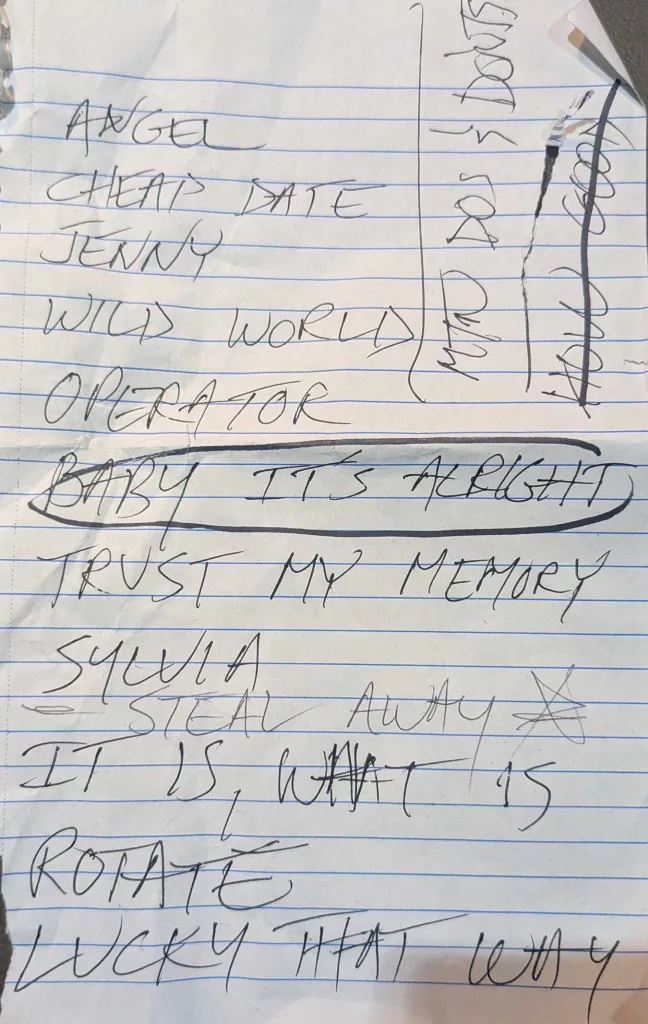 ANGEL
CHEAP DATE
JENNY
WILD WORLD
OPERATOR
BABY IT'S ALRIGHT
TRUST MY MEMORY
SYLVIA
- STEAL AWAY
IT IS, WHAT IS
ROTATE
LUCKY THAT WAY
DOS & DONTS